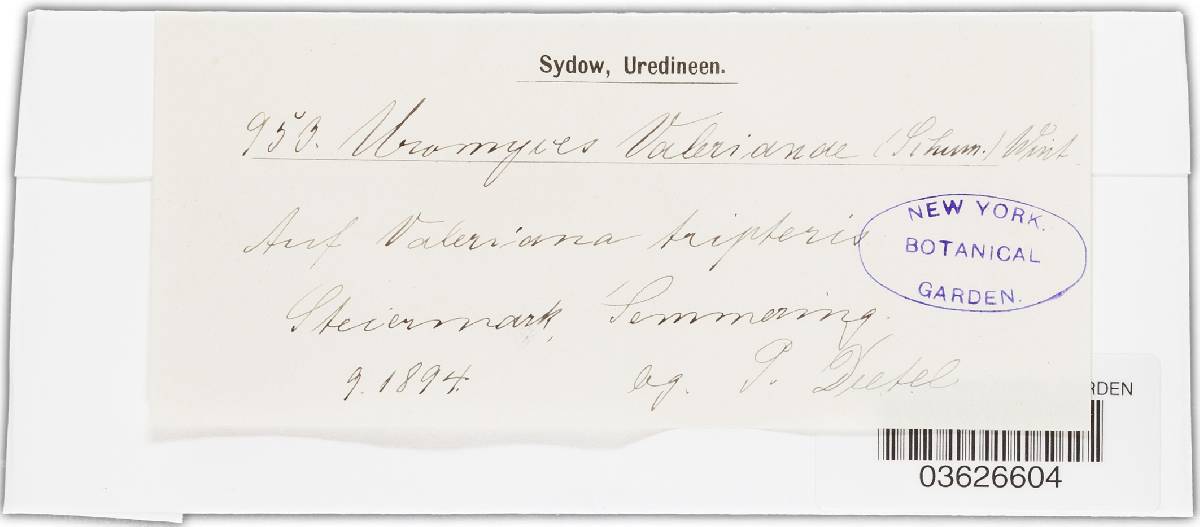 Sydow, Uredineen.
953. Uromyces Valerianae (Schum.) Wint
Auf Valeriana tripteris
Steiermark, Semmering.
9.1894. lg. P. Dietel
NEW YORK
BOTANICAL
GARDEN.
RDEN
03626604